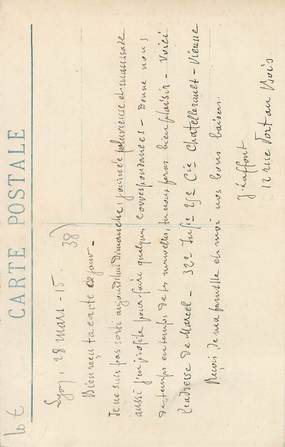 CARTE POSTALE
Lyon, 28 mars - 15
38
Bien reçu ta carte ce jour -
Je ne suis pas sorti aujourd'hui dimanche, journée pluvieuse et maussade
aussi j'en profite pour faire quelques correspondances - donne nous
de temps en temps de tes nouvelles, tu nous feras bien plaisir - Voici
l'adresse de Marcel - 32e Infie 29e Cie Chatellerault - Vienne
Reçois de ma famille et moi nos bons baisers.
12 rue Port au Bois
10 €